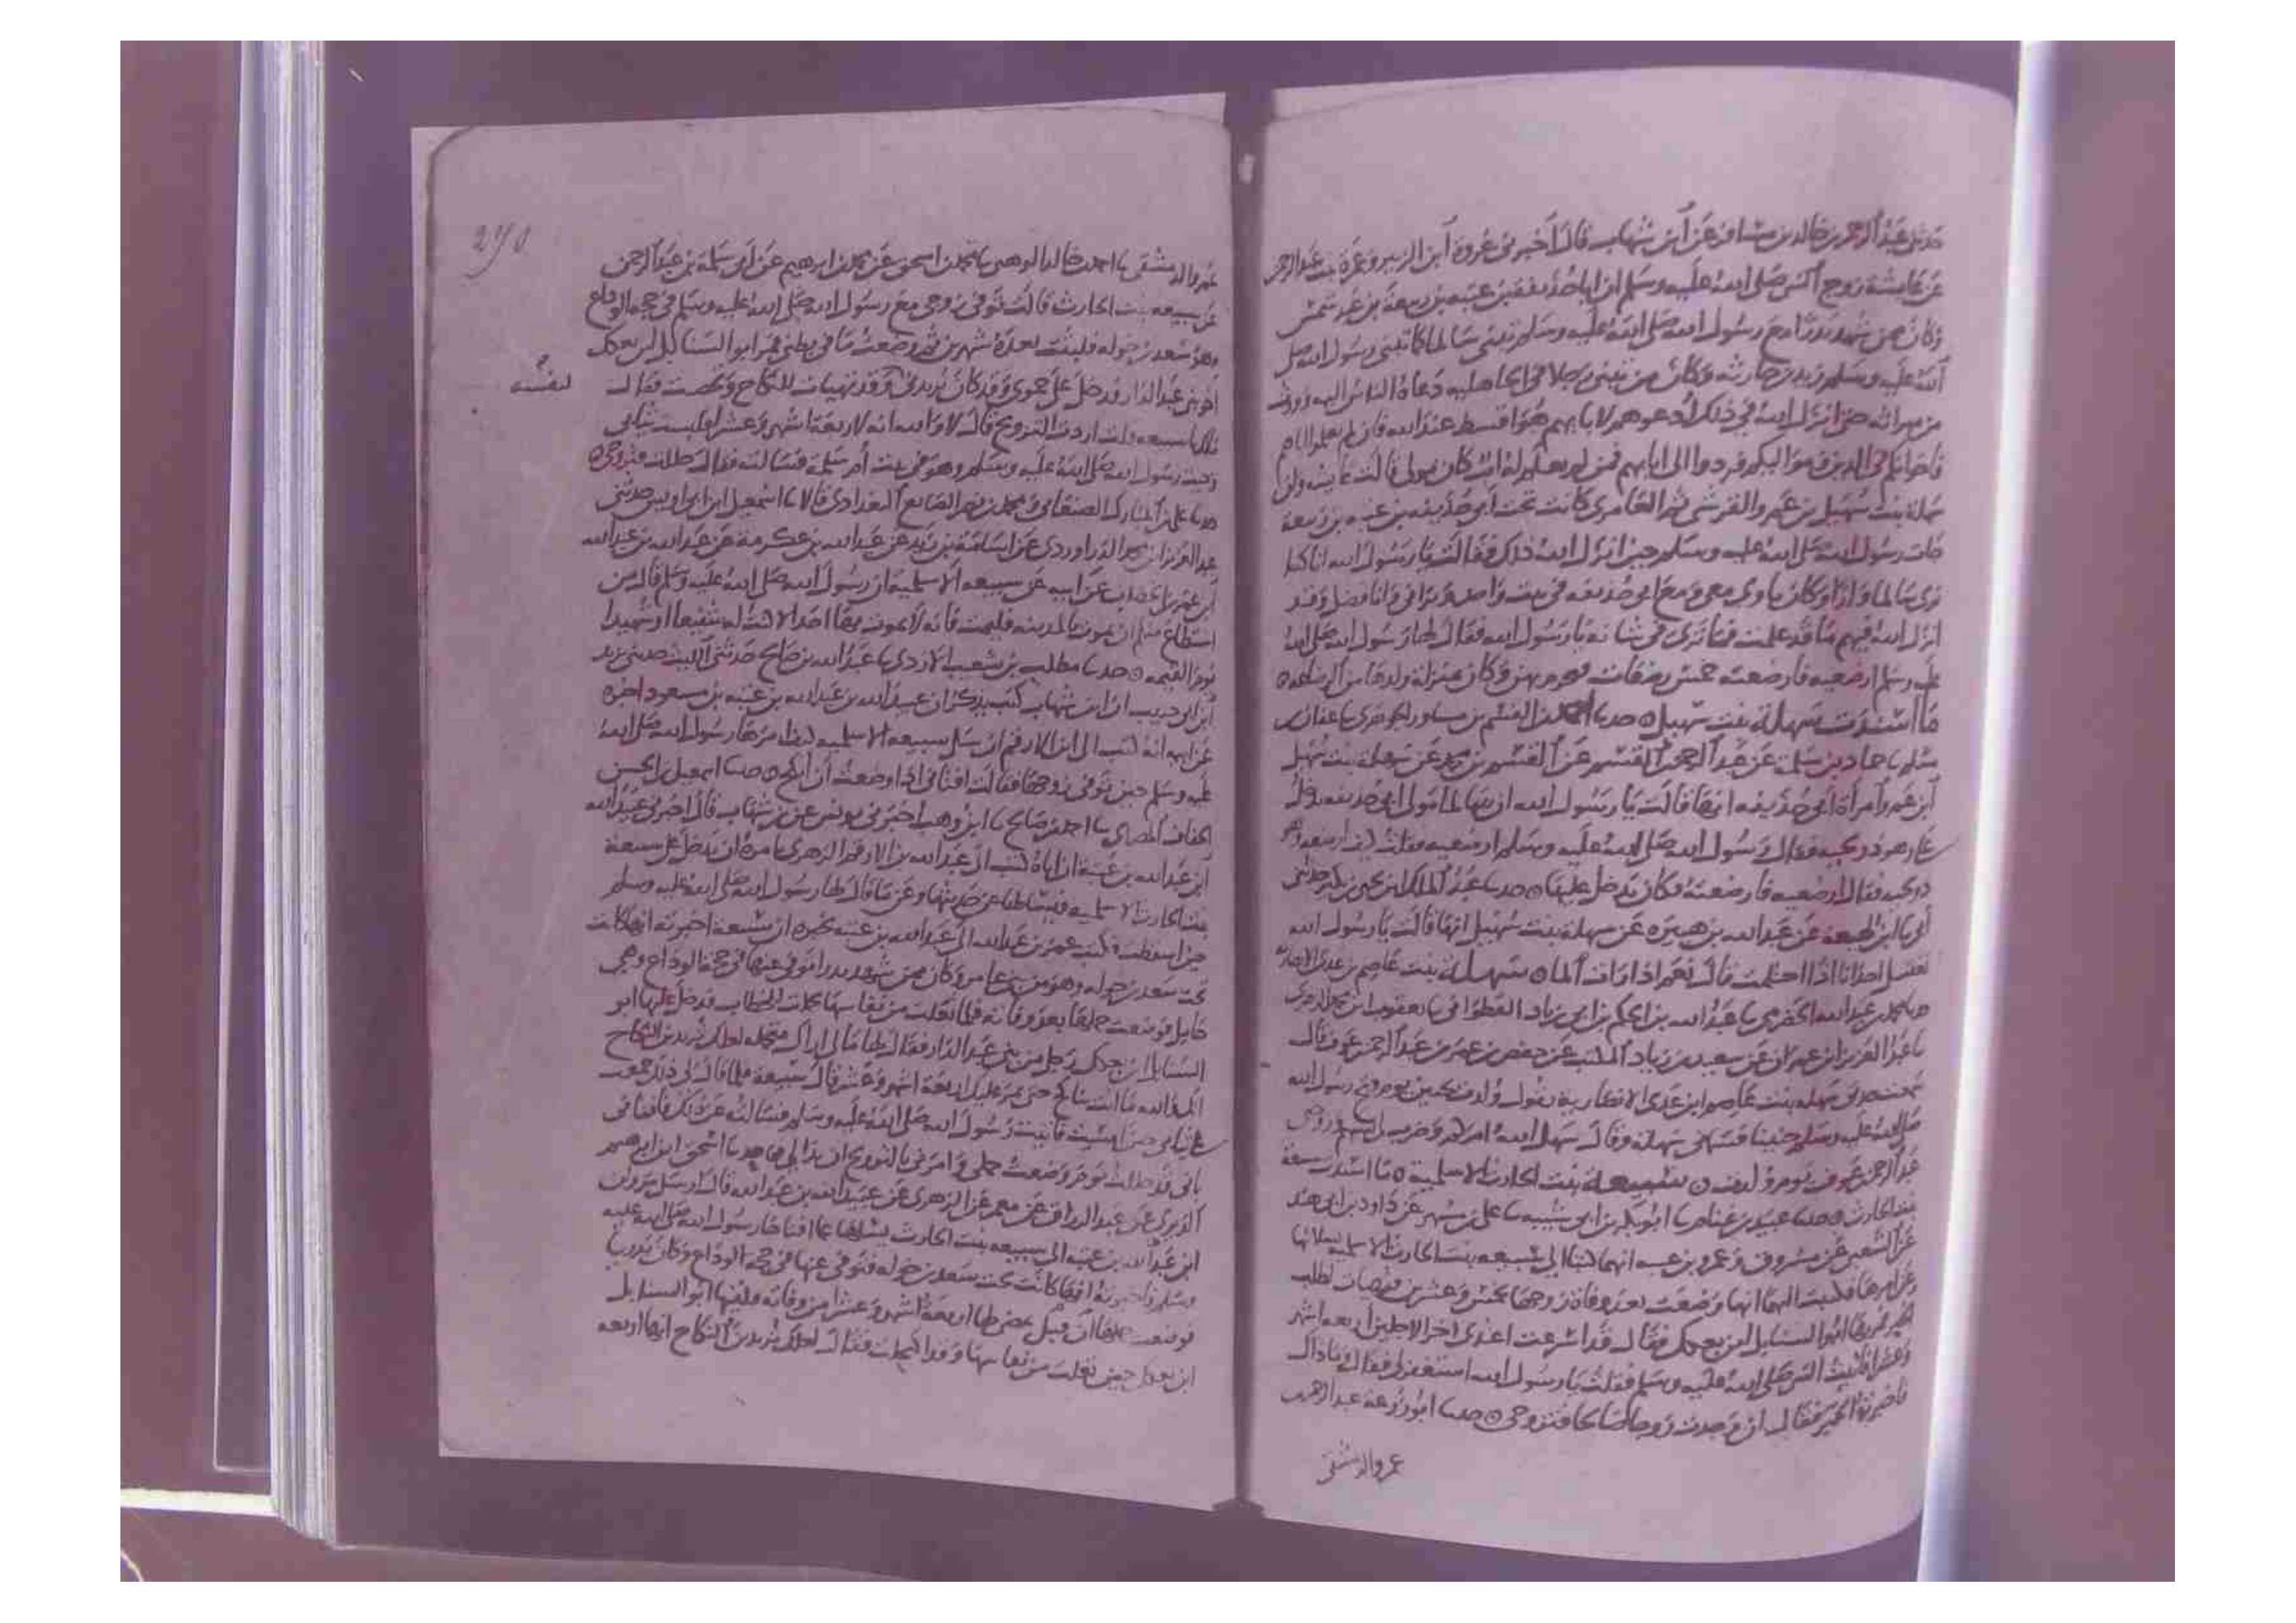 حدثني عبد الرحمن بن خالد بن مسافر عن ابن شهاب قال أخبرني عروة ابن الزبير وعمرة بنت عبد الرحمن
عن عايشة زوج النبي صلى الله عليه وسلم ان ابا حذيفة بن عتبة بن ربيعة بن عبد شمس
وكان ممن شهد بدرا مع رسول الله صلى الله عليه وسلم تبنى سالما كما تبنى رسول الله صلى
الله عليه وسلم زيد بن حارثه وكان من تبنى رجلا في الجاهليه دعاه الناس اليه وورث
من ميراثه حتى انزل الله في ذلك ادعوهم لابايهم هو اقسط عند الله فان لم تعلموا اباهم
فاخوانكم في الدين ومواليكم فردوا الى ابايهم فمن لم يعلم له اب كان مولى قالت عايشه وان
سهلة بنت سهيل بن عمرو القرشي ثم العامري كانت تحت أبي حذيفه بن عتبه بن ربيعة
جات رسول الله صلى الله عليه وسلم حين انزل الله ذلك فقالت يا رسول الله انا كنا
نرى سالما ولدا وكان ياوي معي ومع ابي حذيفه في بيت واحد ويراني وانا فضل وقد
انزل الله فيهم ما قد علمت فما ترى في شانه يا رسول الله فقال لها رسول الله صلى الله
عليه وسلم ارضعيه فارضعته خمس رضعات فحرم بهن وكان بمنزلة ولدها من الرضاعه ه
ما اسندت سهلة بنت سهيل ه حدثنا احمد بن القسم بن مساور الجوهري ثنا عفان بن
مسلم ثنا حماد بن سلمة عن عبد الرحمن القسم عن القسم بن محمد عن سهلة بنت سهيل
ابن عمرو امرأة ابي حذيفه انها قالت يا رسول الله ان سالما مولى ابي حذيفه يدخل
علي وهو ذو لحيه فقال رسول الله صلى الله عليه وسلم ارضعيه فقلت كيف ارضعه وهو
ذو لحيه فقال ارضعيه فارضعته فكان يدخل عليها ه حدثنا عبد الملك بن يحيى بن بكير حدثني
أبي ثنا ابن لهيعة عن عبد الله بن هبيرة عن سهلة بنت سهيل انها قالت يا رسول الله
تغتسل احدانا اذا احتلمت قال نعم اذا رات الما ه سهلة بنت عاصم بن عدي الانصاريه
حدثنا محمد بن عبد الله الحضرمي ثنا عبد الله بن الحكم بن ابي زياد القطواني ثنا يعقوب ابن محمد الزهري
ثنا عبد العزيز ابن عمران عن سعيد بن زياد المكتب عن حفص بن عمر بن عبد الرحمن بن عوف قال
سمعت جدتي سهله بنت عاصم ابن عدي الانصارية تقول ولدت يوم فتح رسول الله
صلى الله عليه وسلم حنينا فسماني سهلة وقال سهل الله امركم وضرب لي بسهم وزوجني
عبد الرحمن بن عوف يوم ولدت ه سبيعة بنت الحارث الاسلمية ه ما اسندت سبيعة
بنت الحارث ه حدثنا عبيد بن غنام ثنا ابو بكر بن ابي شيبه ثنا علي بن مسهر عن داود بن ابي هند
عن الشعبي عن مسروق وعمرو بن عتبه انهما كتبا الى سبيعه بنت الحارث الاسلميه يسلانها
عن امرها فكتبت اليهما انها وضعت بعد وفاة زوجها بخمس وعشرين فتهيات تطلب
الخير فمر بها ابو السنابل ابن بعكك فقال قد اسرعت اعتدي اخر الاجلين اربعه اشهر
وعشرا فاتيت النبي صلى الله عليه وسلم فقلت يا رسول الله استغفر لي فقال وما ذاك
فاخبرته الخبر فقال ان وجدت زوجا صالحا فتزوجي ه حدثنا ابو زرعة عبد الرحمن بن
عمرو الدمشقي
290
عمرو الدمشقي ثنا احمد خالد الوهبي ثنا محمد بن اسحق عن محمد بن ابرهيم عن ابي سلمة بن عبد الرحمن
عن سبيعه بنت الحارث قالت توفي زوجي مع رسول الله صلى الله عليه وسلم في حجه الوداع
وهو سعد بن خوله فلبثت بعده شهرين ثم وضعت ما في بطني فمر ابو السنابل ابن بعكك
اخو بني عبد الدار فدخل علي حموي وقد كان يريدني وقد تهيات للنكاح فقالت
يا سبيعه اردت التزويج قال لا والله انه لاربعة اشهر وعشرا فلبست ثيابي
وجيت رسول الله صلى الله عليه وسلم وهو في بيت ام سلمة فسالته فقال حللت فتزوجي ه
حدثنا علي بن المبارك الصنعاني ومحمد بن نصر الصايغ البغدادي قالا ثنا اسمعيل ابن ابي اويس حدثني
عبد العزيز ابن محمد الدراوردي عن اسامة بن زيد عن عبد الله بن عكرمة عن عبد الله بن عبد الله
ابن عمر بن الخطاب عن ابيه عن سبيعه الاسلمية ان رسول الله صلى الله عليه وسلم قال من
استطاع منكم ان يموت بالمدينه فليمت فانه لا يموت بها احد الا كنت له شفيعا او شهيدا
يوم القيمه ه حدثنا مطلب بن شعيب الازدي ثنا عبد الله بن صالح حدثني الليث حدثني يزيد
ابن ابي حبيب ان ابن شهاب كتب يذكر ان عبيد الله بن عبد الله بن عتبه بن مسعود اخبره
عن ابيه انه كتب الى ابن الارقم ان سل سبيعه الاسلميه كيف امرها رسول الله صلى الله
عليه وسلم حين توفي زوجها فقالت افتاني اذا وضعت ان انكح ه حدثنا اسمعيل بن الحسن
الخفاف المصري ثنا احمد بن صالح ثنا ابن وهب اخبرني يونس عن ابن شهاب قال اخبرني عبيد الله
ابن عبد الله بن عتبة ان اباه كتب الى عبد الله بن الارقم الزهري يامره ان يدخل على سبيعة
بنت الحارث الاسلميه فيسالها عن حديثها وعن ما قال لها رسول الله صلى الله عليه وسلم
حين استفتته فكتب عمر بن عبد الله الى عبد الله بن عتبه يخبره ان سبيعة اخبرته انها كانت
تحت سعد بن خوله وهو من بني عامر وكان ممن شهد بدرا فتوفي عنها في حجة الوداع وهي
حامل فوضعت حملها بعد وفاته فلما تعلت من نفاسها تجملت للخطاب فدخل عليها ابو
السنابل ابن بعكك رجل من بني عبد الدار فقال لها ما لي اراك متجمله لعلك تريدين النكاح
انك والله ما انت بناكح حتى يمر عليك اربعة اشهر وعشر قال سبيعة فلما قال لي ذلك جمعت
علي ثيابي حين امسيت فاتيت رسول الله صلى الله عليه وسلم فسالته عن ذلك فافتاني
باني قد حللت يوم وضعت حملي وامرني بالتزويج ان بدا لي ه حدثنا اسحق ابن ابرهيم
الدبري عن عبد الرزاق عن معمر عن الزهري عن عبيد الله بن عبد الله قال ارسل مروان
ابن عبد الله بن عتبه الى سبيعه بنت الحارث يسالها عما افتاها رسول الله صلى الله عليه
وسلم فاخبرته انها كانت تحت سعد بن خوله فتوفي عنها في حجة الوداع وكان بدريا
فوضعت حملها قبل تمضي لها اربعة اشهر وعشرا من وفاته فلقيها ابو السنابل
ابن بعكك حين تعلت من نفاسها وقد اكتحلت فقال لعلك تريدين النكاح انها اربعه